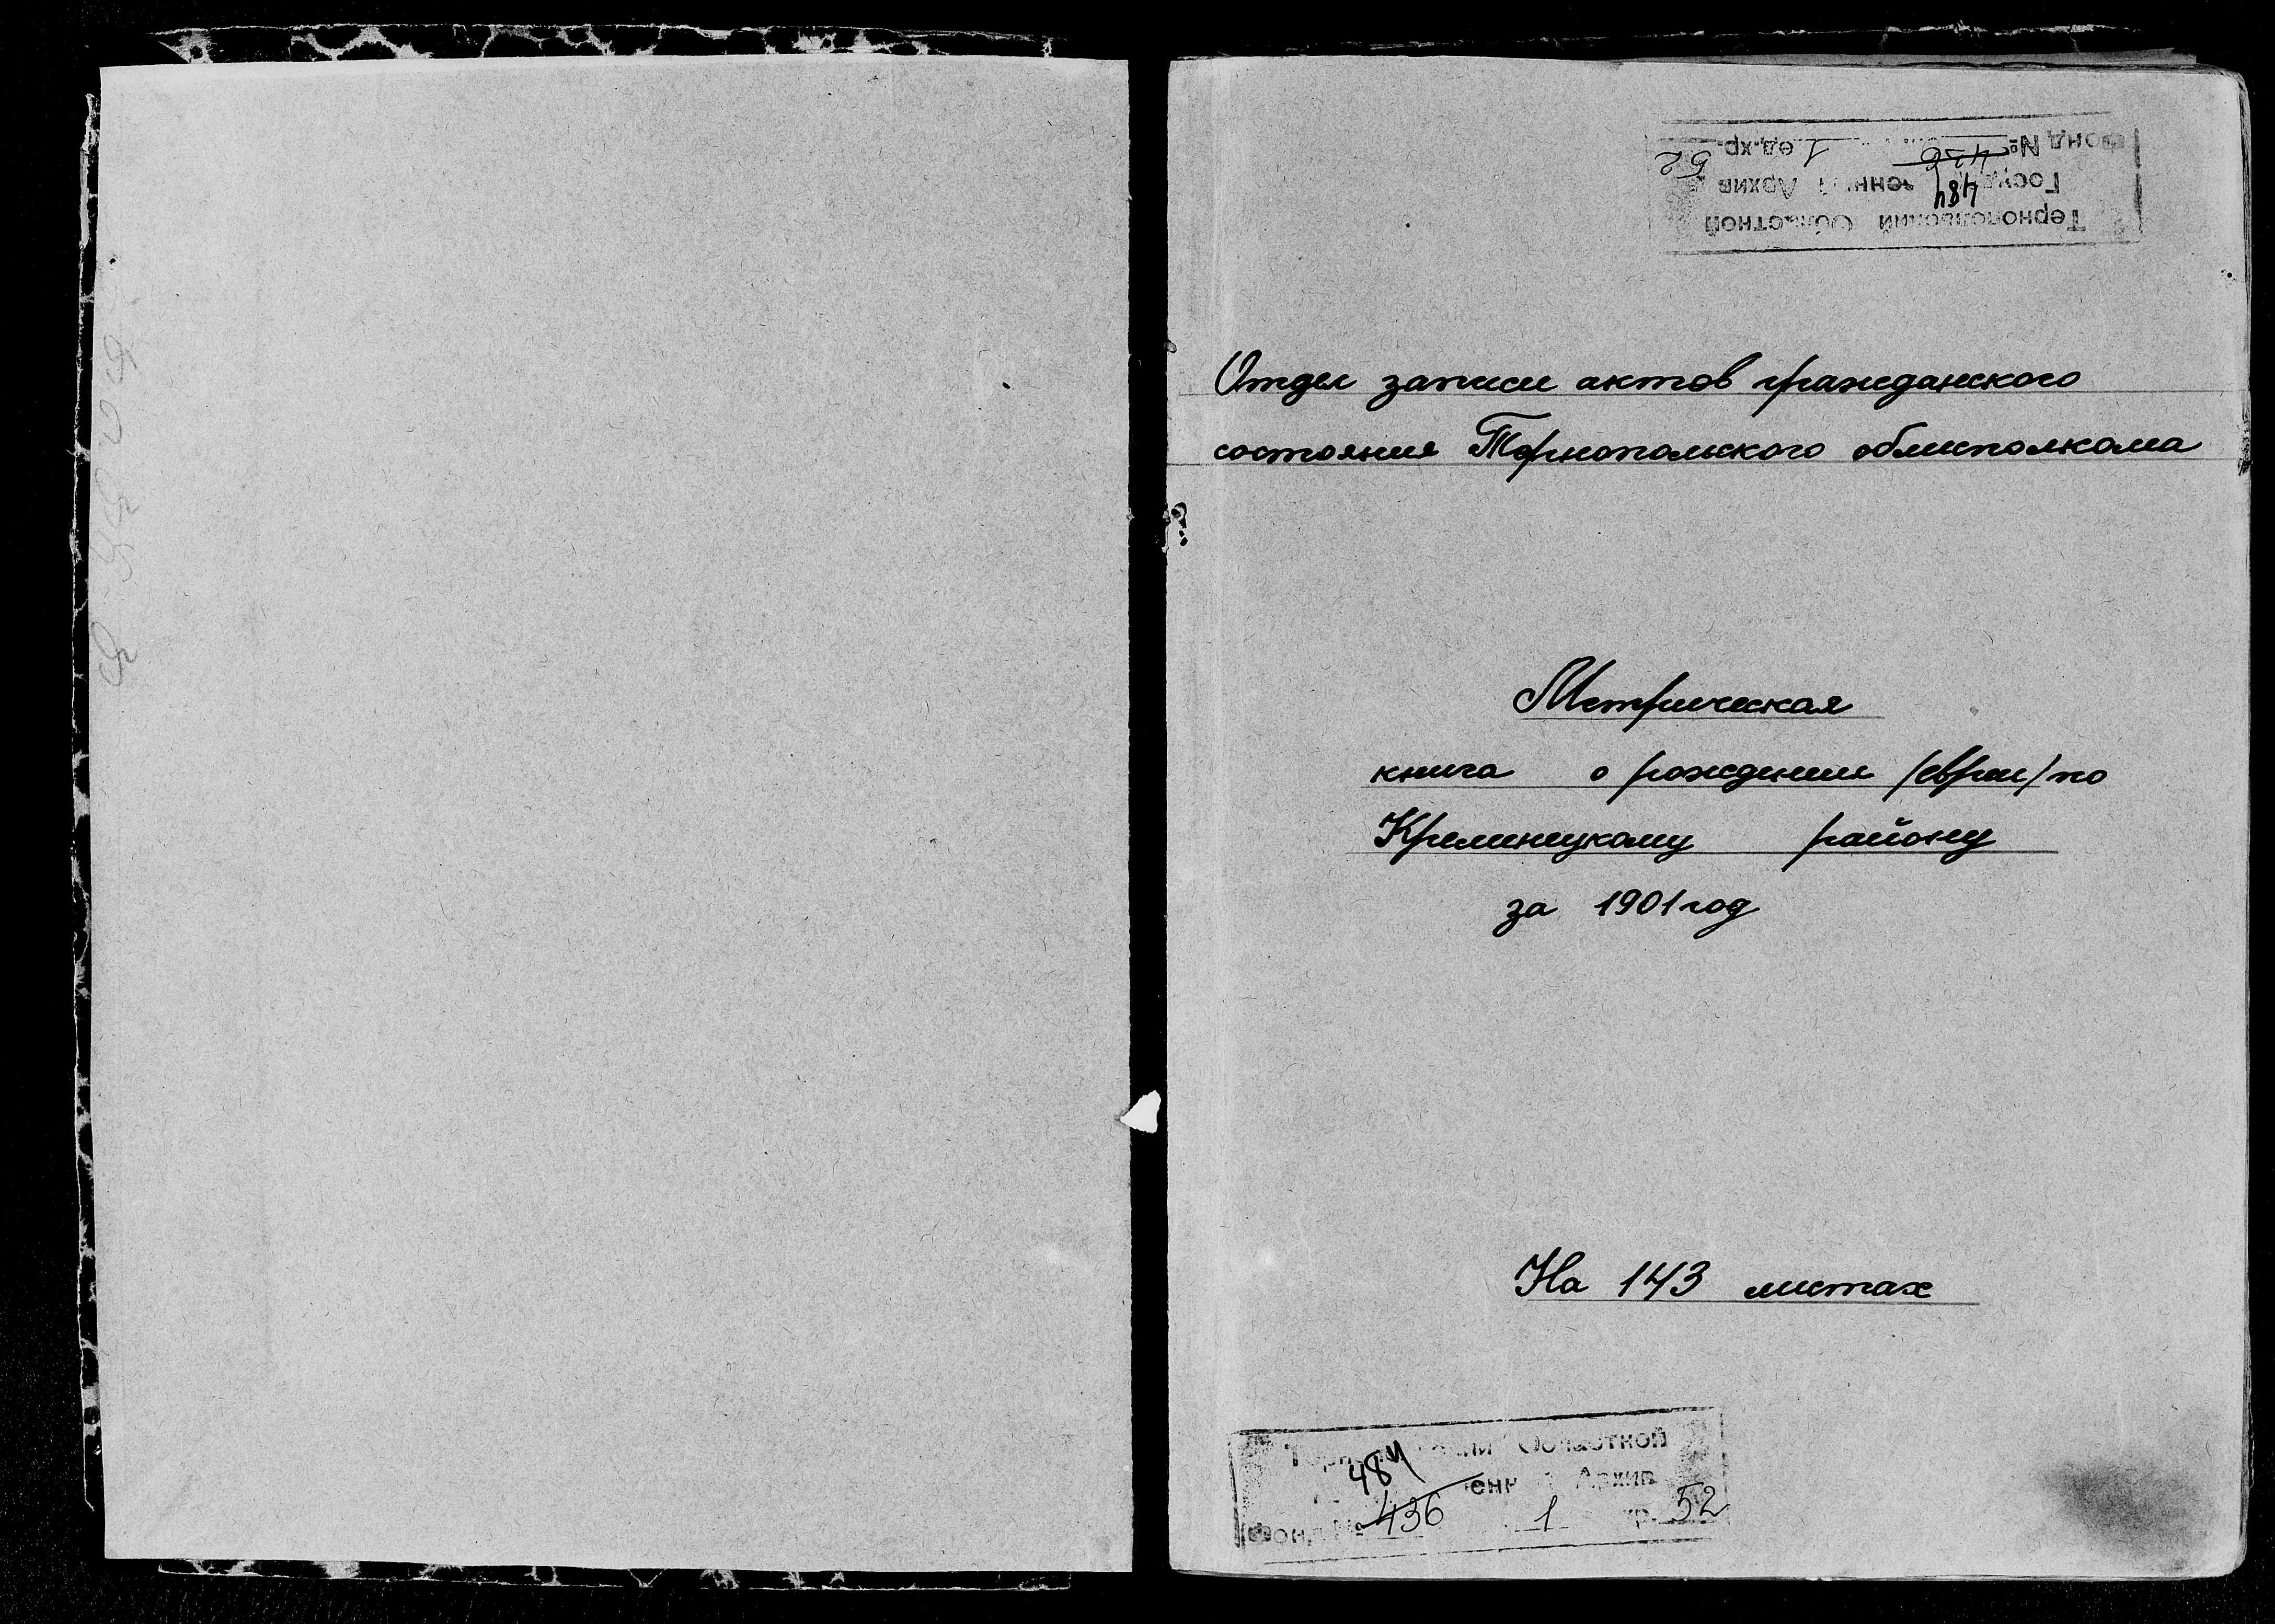 Тернопольский Областной
Архив
Фонд № 436 484 1 ед.хр. 52
Отдел записи актов гражданского
состояния Тернопольского облисполкома
Метрическая
книга о рождении /евреи/ по
Кременецкому району
за 1901 год
На 143 листах
Областной
484 Архив
436 1 хр. 52